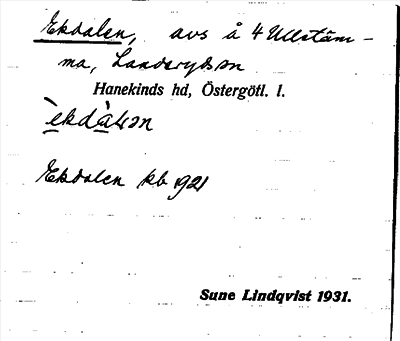 Ekdalen, avs å 4 Ullstäm-
ma, Landeryds sn
Hanekinds hd, Östergötl. l.
èkdàlɘn
Ekdalen kb 1921
Sune Lindqvist 1931.